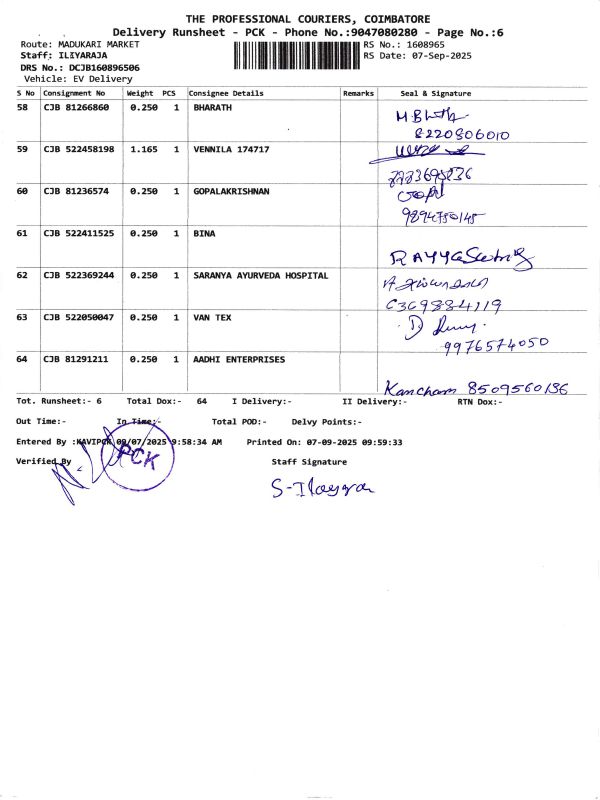 THE PROFESSIONAL COURIERS, COIMBATORE
Delivery Runsheet - PCK - Phone No.:9047080280 - Page No.:6
Route: MADUKARI MARKET RS No.: 1608965
Staff: ILIYARAJA RS Date: 07-Sep-2025
DRS No.: DCJB160896506
Vehicle: EV Delivery
S No Consignment No Weight PCS Consignee Details Remarks Seal & Signature
58 CJB 81266860 0.250 1 BHARATH
8220806010
59 CJB 522458198 1.165 1 VENNILA 174717
60 CJB 81236574 0.250 1 GOPALAKRISHNAN
9894750145
61 CJB 522411525 0.250 1 BINA
62 CJB 522369244 0.250 1 SARANYA AYURVEDA HOSPITAL
63 CJB 522050047 0.250 1 VAN TEX
9976574050
64 CJB 81291211 0.250 1 AADHI ENTERPRISES
Kancham 8509560136
Tot. Runsheet:- 6 Total Dox:- 64 I Delivery:- II Delivery:- RTN Dox:-
Out Time:- In Time:- Total POD:- Delvy Points:-
Entered By :KAVIPCK 09/07/2025 9:58:34 AM Printed On: 07-09-2025 09:59:33
Verified By PCK Staff Signature